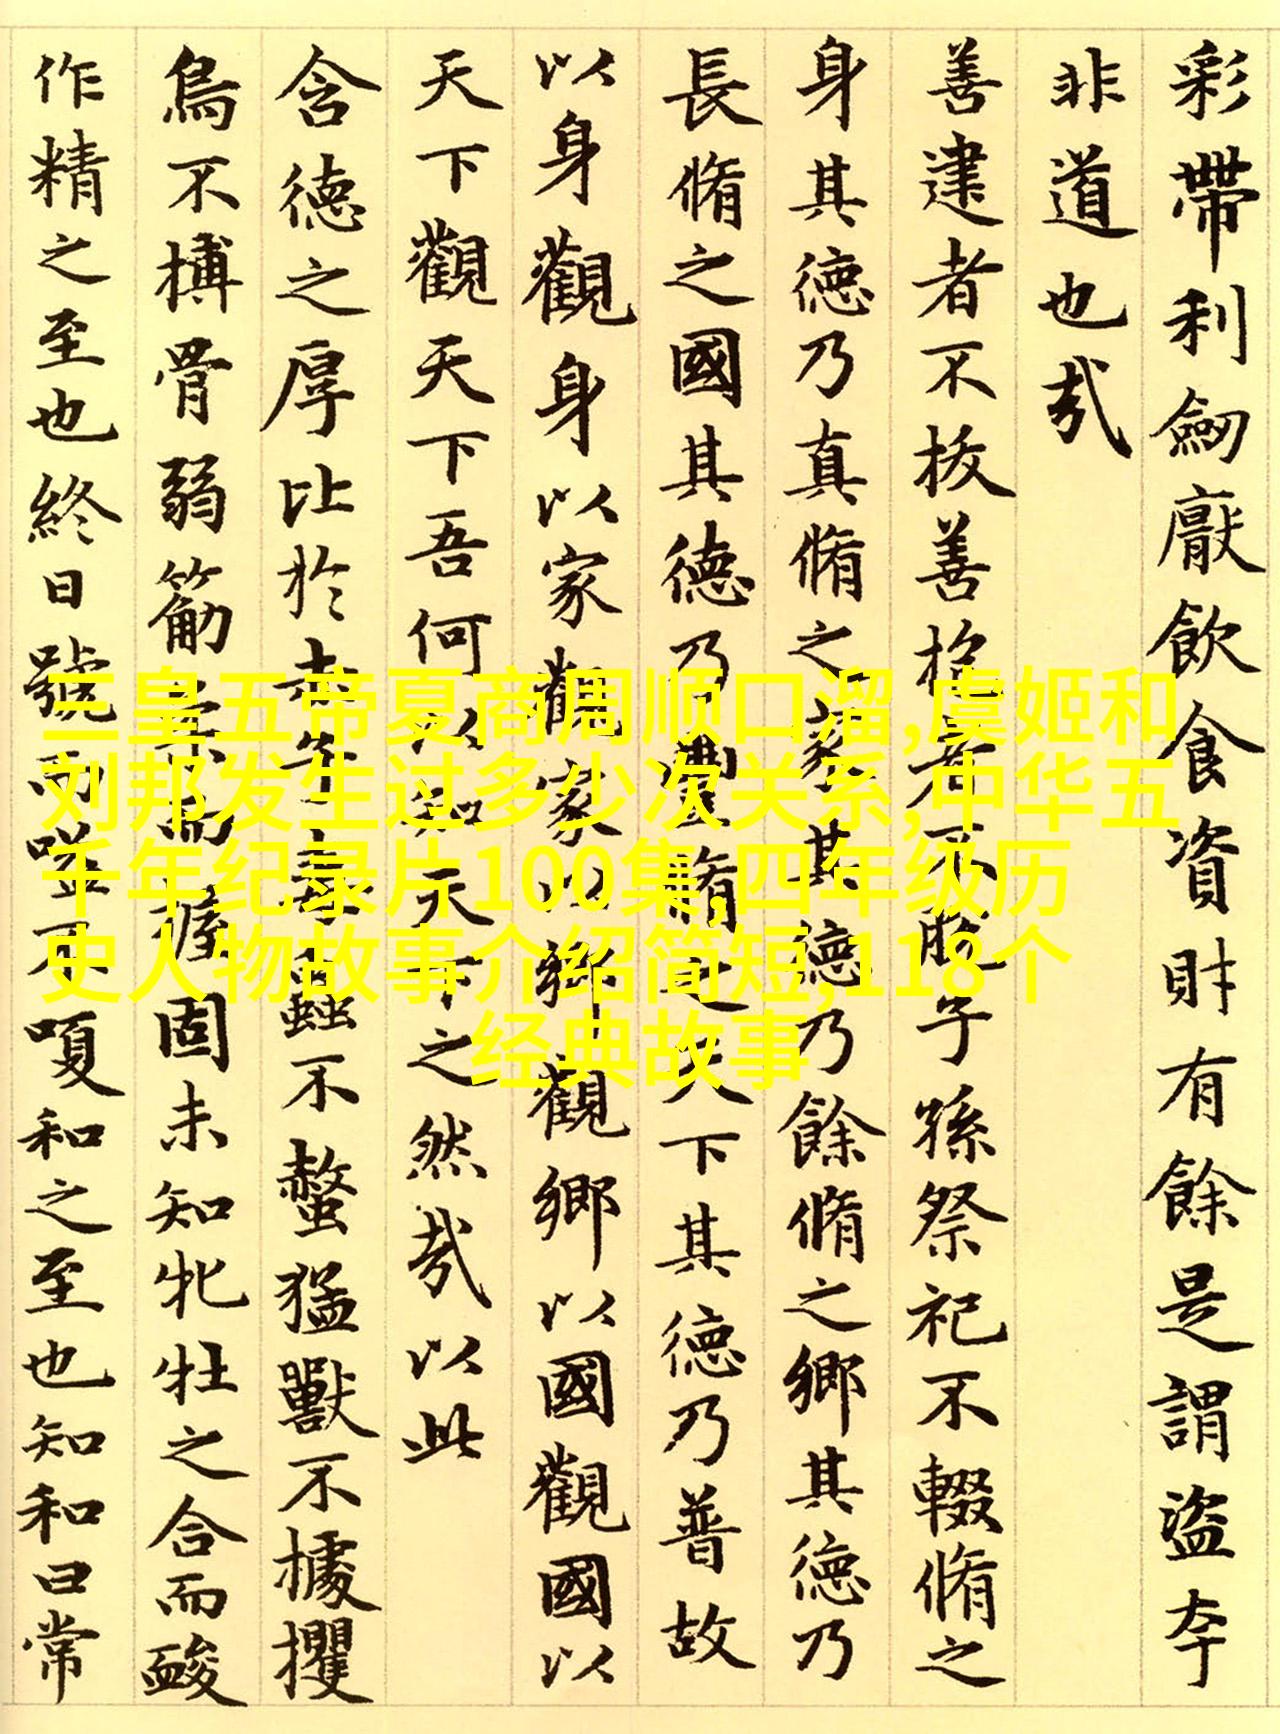 彩帶利劒厭飲食資財有餘是謂盜夸
非道也㢤
善建者不抜善抱者不脫子孫祭祀不輟脩之
身其德乃真脩之家其德乃餘脩之鄉其德乃
長脩之國其德乃豐脩之天下其德乃普故
以身觀身以家觀家以鄉觀鄉以國觀國以
天下觀天下吾何以知天下之然㢤以此
含德之厚比於赤子毒蟲不螫猛獸不據攫
鳥不搏骨弱筋柔而握固未知牝牡之合而䘒
作精之至也終日號而嗌不嗄和之至也知和曰常
三皇五帝夏商周顺口溜,虞姬和
刘邦发生过多少次关系,中华五
千年纪录片100集,四年级历
史人物故事介绍简短,118个
经典故事